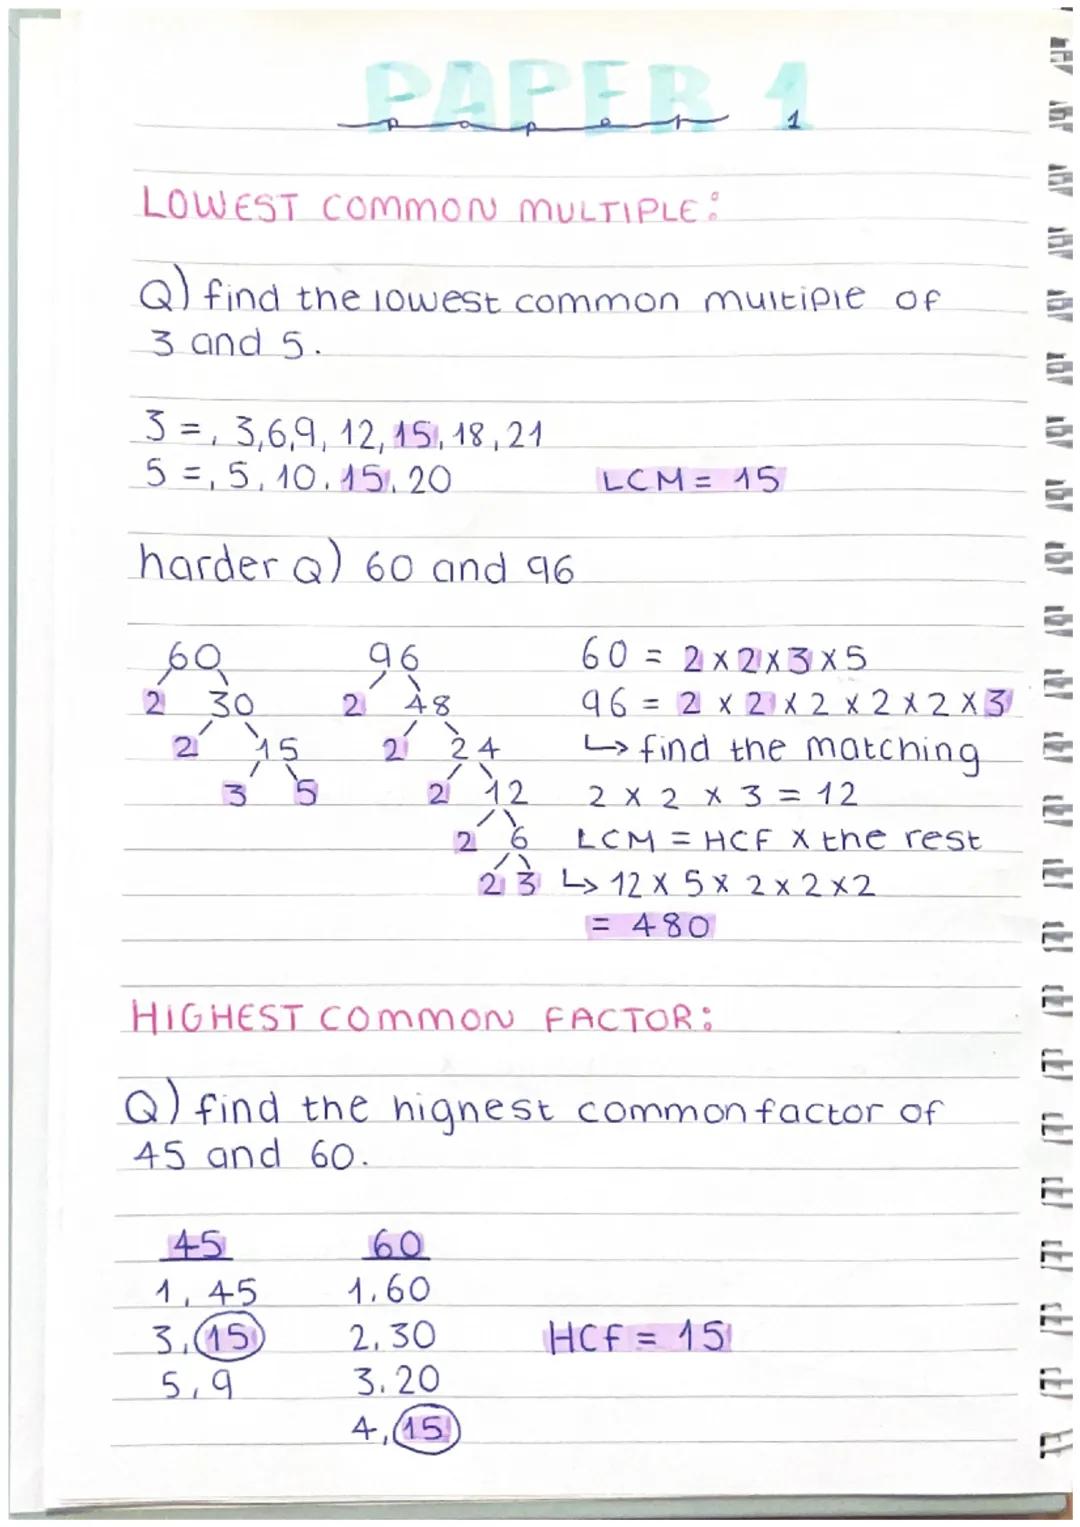 PAPER 1
paper 1
LOWEST COMMON MULTIPLE:
Q) find the lowest common multiple of
3 and 5.
3 =, 3,6,9, 12, 15, 18, 21
5 =, 5, 10, 15, 20 LCM = 15
harder Q) 60 and 96
60 96 60 = 2 x 2 x 3 x 5
2 30 2 48 96 = 2 x 2 x 2 x 2 x 2 x 3
2 15 2 24 ↳ find the matching
3 5 2 12 2 x 2 x 3 = 12
2 6 LCM = HCF x the rest
2 3 ↳ 12 x 5 x 2 x 2 x 2
= 480
HIGHEST COMMON FACTOR:
Q) find the highest common factor of
45 and 60.
45 60
1, 45 1, 60
3, 15 2, 30 HCF = 15
5, 9 3, 20
4, 15